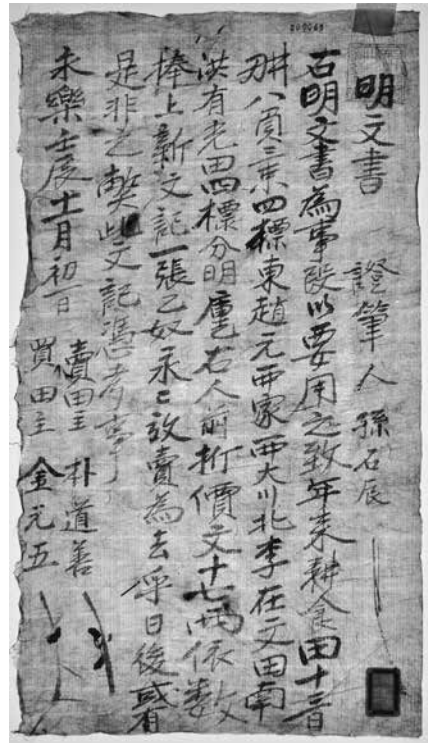 明文書 證筆人 孫石辰
右明文書為事段以要用之致年来耕食田十
畊八負三束四標東趙元西家西大川北李在文田南
洪有光田四標分明庫右人前折價文十七兩依數
捧上新文記一張乙奴永〻放賣為去乎日後或有
是非之獘此文記憑考事
永樂壬辰十一月初一日
賣田主 朴道善
買田主 金元五